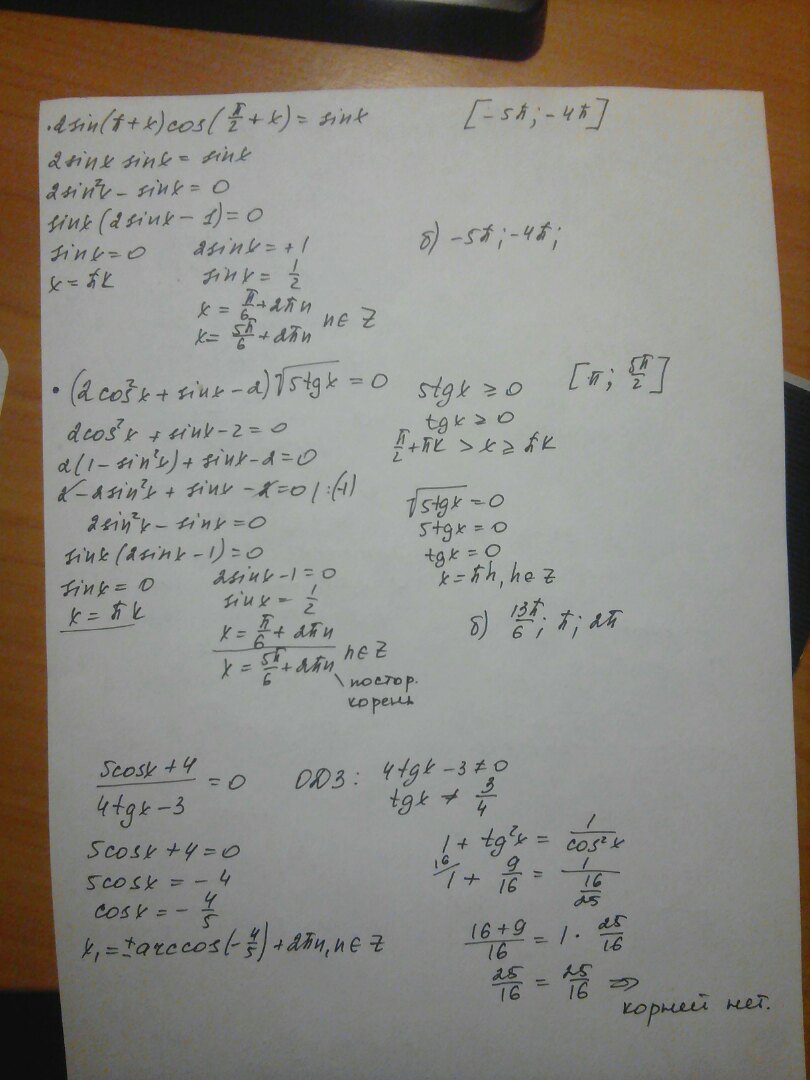 • 2sin(π+x)cos(π/2+x) = sinx [-5π; -4π]
2sinx sinx = sinx
2sin²x - sinx = 0
sinx(2sinx - 1) = 0
sinx = 0 2sinx = +1 б) -5π; -4π;
x = πk sinx = 1/2
x = π/6 + 2πn
x = 5π/6 + 2πn n∈Z
• (2cos²x + sinx - 2)√5tgx = 0 5tgx ≥ 0 [π; 5π/2]
2cos²x + sinx - 2 = 0 tgx ≥ 0
2(1 - sin²x) + sinx - 2 = 0 π/2 + πk > x ≥ πk
2 - 2sin²x + sinx - 2 = 0 | :(-1) √5tgx = 0
2sin²x - sinx = 0 5tgx = 0
sinx(2sinx - 1) = 0 tgx = 0
sinx = 0 2sinx - 1 = 0 x = πn, n∈Z
x = πk sinx = 1/2
x = π/6 + 2πn б) 13π/6; π; 2π
x = 5π/6 + 2πn n∈Z
постор.
корень
5cosx + 4 / 4tgx - 3 = 0 ОДЗ: 4tgx - 3 ≠ 0
tgx ≠ 3/4
5cosx + 4 = 0 1 + tg²x = 1/cos²x
5cosx = -4 16/1 + 9/16 = 1/(16/25)
cosx = -4/5
x₁ = ±arccos(-4/5) + 2πn, n∈Z 16+9/16 = 1 · 25/16
25/16 = 25/16 ⇒
корней нет.